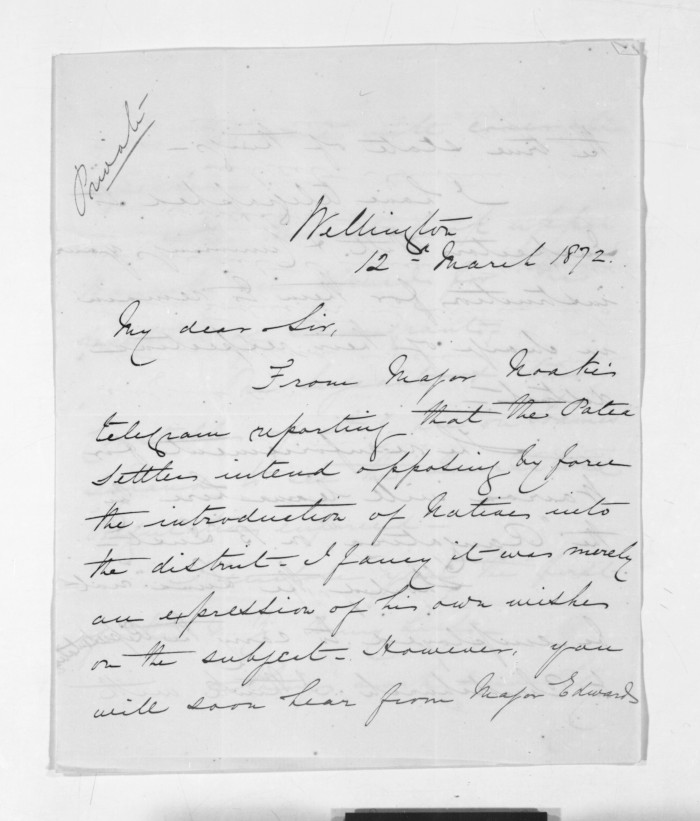 Private
Wellington
12th March 1872.
My dear Sir,
From Major Noake's
telegram reporting that the Patea
Settlers intend opposing by force
the introduction of Natives into
the district - I fancy it was merely
an expression of his own wishes
on the subject - However, you
will soon hear from Major Edwards